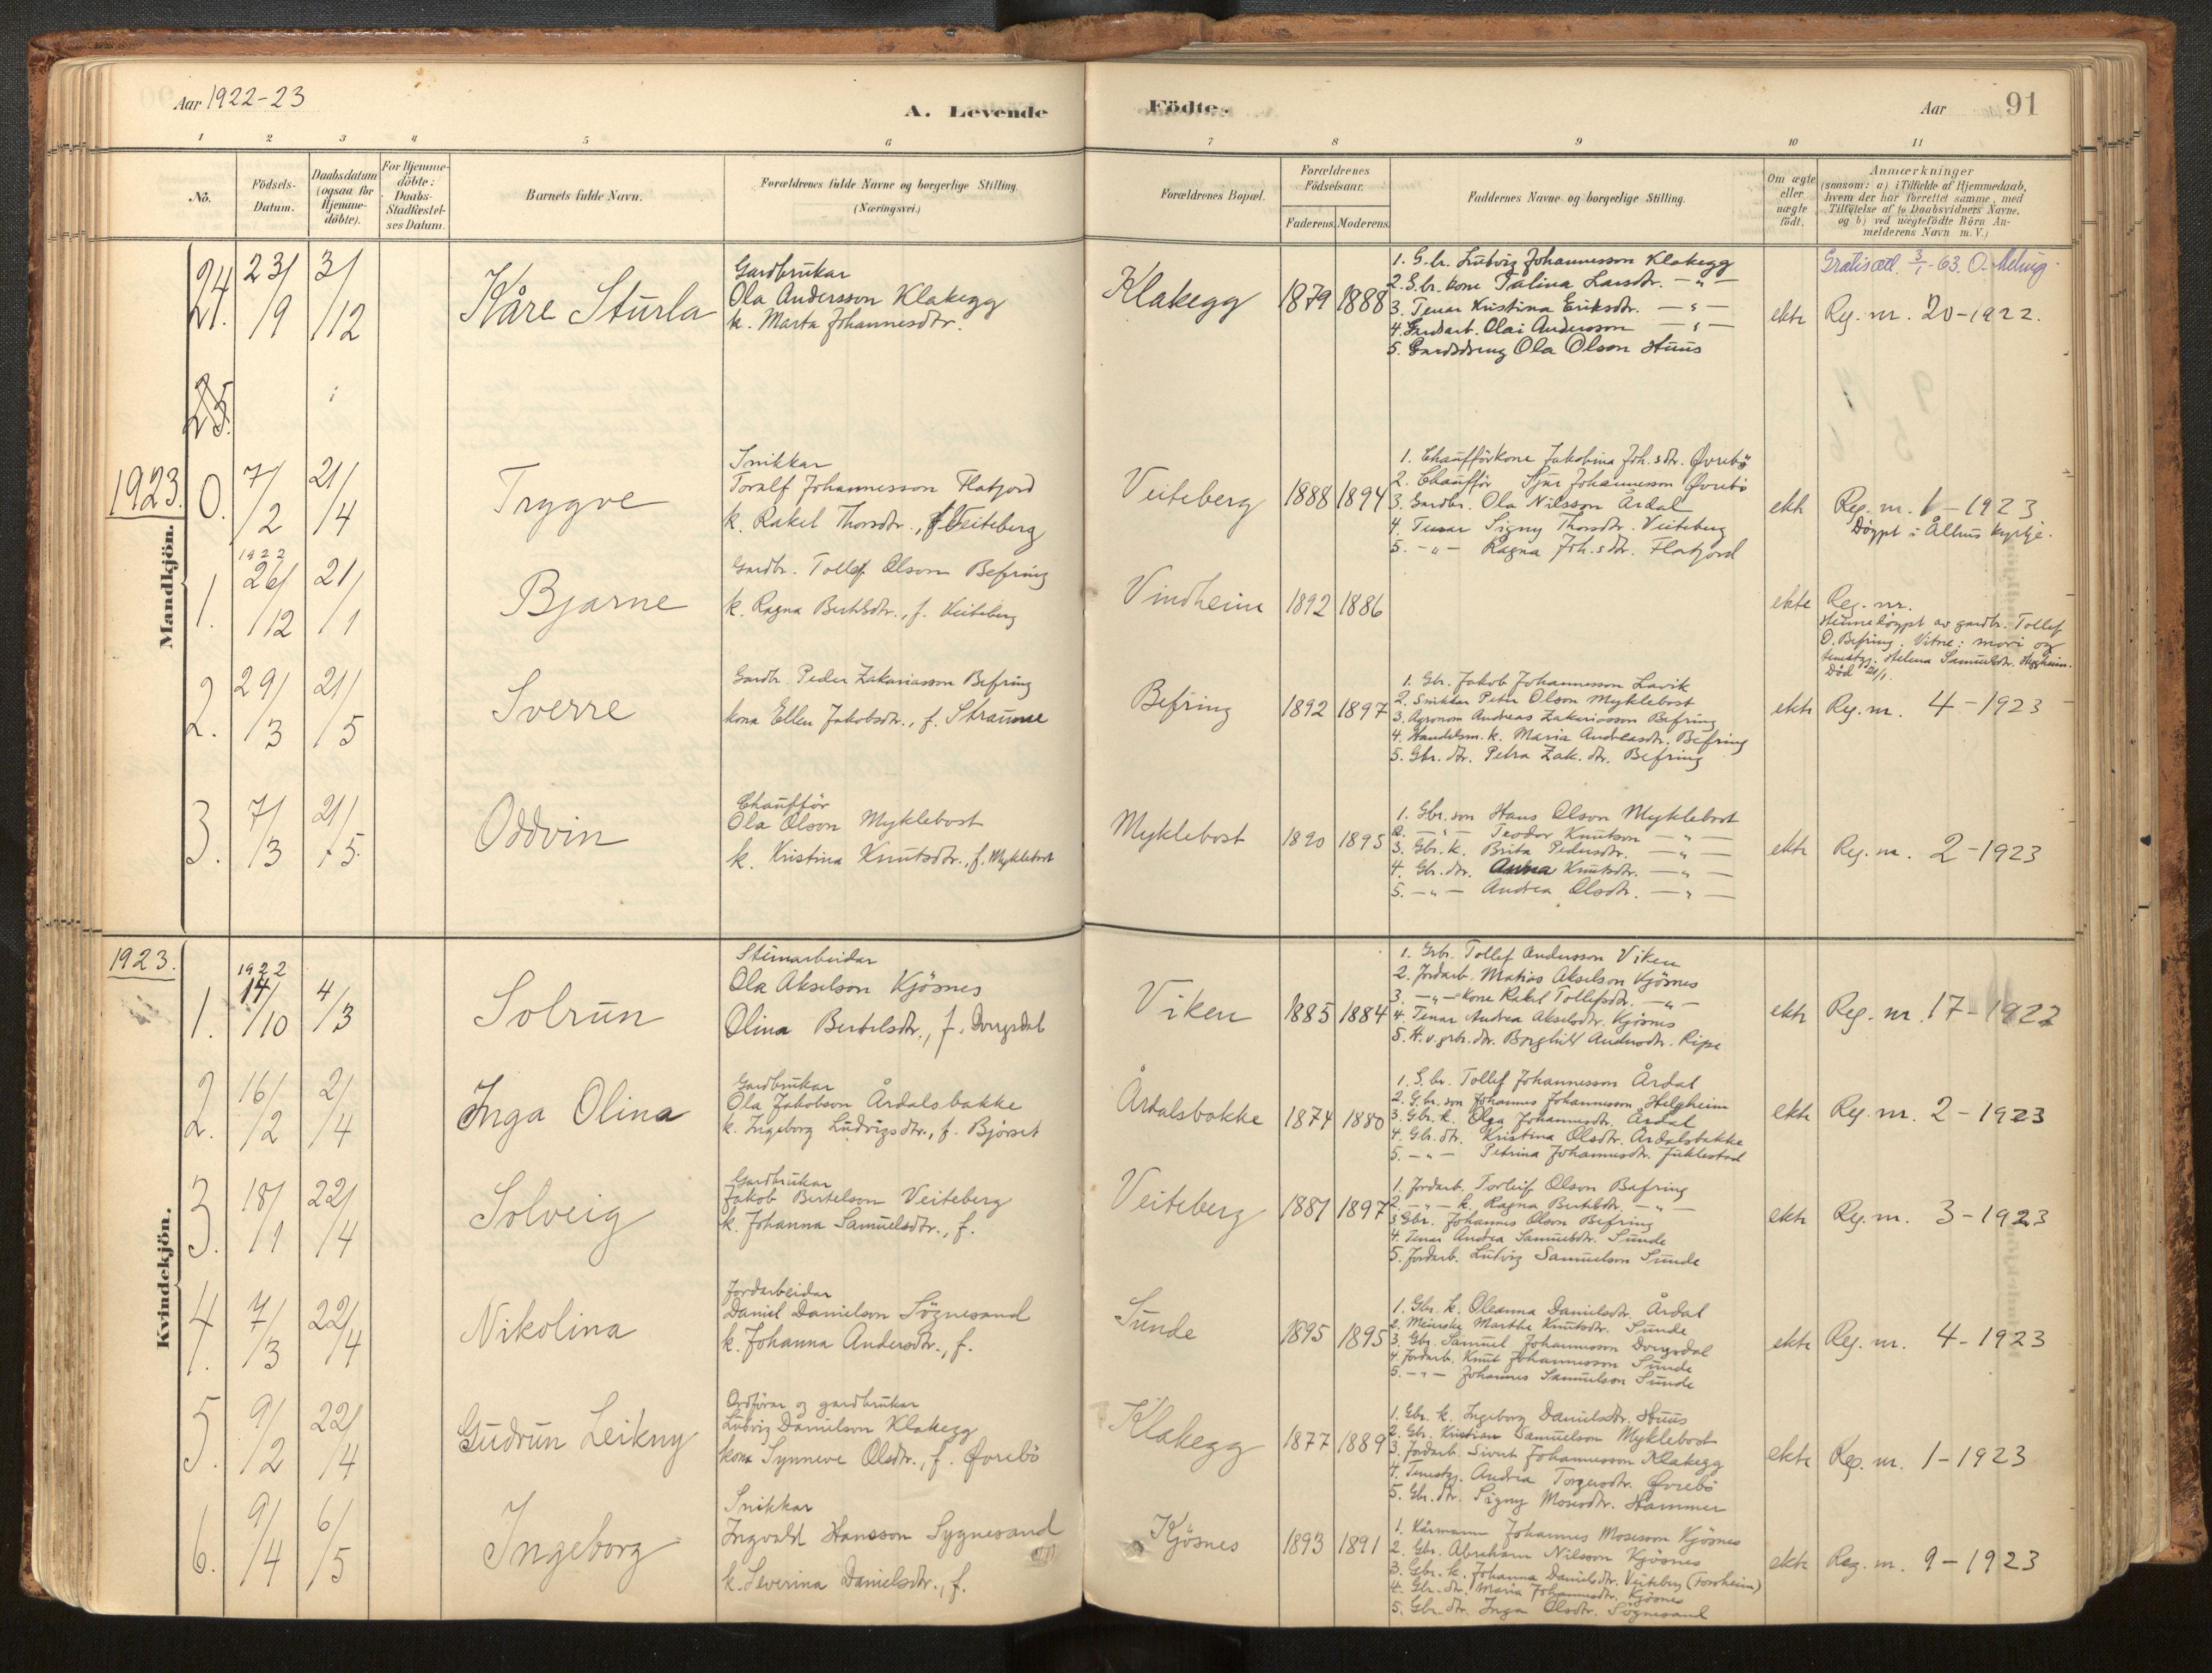 Aar 1922-23
A. Levende
Födte.
Aar
91
1 2 3 4 5 6 7 8 9 10 11
No.
Födsels-
Datum.
Daabsdatum
(ogsaa for
Hjemme-
döbte).
For Hjemme-
döbte:
Daabs-
Stadfæstel-
ses Datum.
Barnets fulde Navn.
Forældrenes fulde Navne og borgerlige Stilling
(Næringsvei.)
Forældrenes Bopæl.
Forældrenes
Födselsaar.
Faderens. Moderens.
Faddernes Navne og borgerlige Stilling.
Om ægte
eller
uægte
födt.
Anmærkninger
(saasom: a) i Tilfælde af Hjemmedaab,
hvem der har forrettet samme, med
Tilföielse af to Daabsvidners Navne.
og b) ved uægtefödte Börn An-
melderens Navn m. V.)
Mandkjön.
24. 23/9 3/12
Kåre Sturla
Gardbrukar
Ola Andersson Klakegg
k. Marta Johannesdtr.
Klakegg 1879 1888
1. G.br. Ludvig Johannesson Klakegg
2. G.br. kone Talina Larsdtr. — " —
3. Tenar Kristina Eriksdtr. — " —
4. Gardsarb. Olai Andersson — " —
5. Gardsdreng Ola Olson Huus
ekte
Gratisatt. 3/1-63. O.
Reg. nr. 20-1922.
25.
1923.
0. 7/2 21/4
Trygve
Snikkar
Toralf Johannesson Flatjord
k. Rakel Thorsdtr., f. Veiteberg
Veiteberg 1888 1894
1. Chaufförkone Jakobina Joh.sdtr. Øvrebö
2. Chaufför Sjur Johannesson Øvrebö
3. Gardbr. Ola Nilsson Årdal
4. Tenar Signy Thorsdtr. Veiteberg
5. — " — Ragna Joh.sdtr. Flatjord
ekte
Reg. nr. 1-1923
Döypt i Ålhus kyrkje.
1922
1. 26/12 21/1
Bjarne
Gardbr. Tollef Olson Befring
k. Ragna Bertelsdtr., f. Veiteberg
Vindheim 1892 1886
ekte
Reg. nr.
Heimedöypt av gardbr. Tollef
O. Befring. Vitne: mori og
tenestgj. Helena Samuelsdtr.
Död 21/1.
2. 29/3 21/5
Sverre
Gardbr. Peder Zakariasson Befring
kona Ellen Jakobsdtr., f. Straume
Befring 1892 1897
1. Gbr. Jakob Johannesson Lavik
2. Snikkar Peter Olson Myklebost
3. Agronom Andreas Zakariasson Befring
4. Handelsm. k. Maria Andreasdtr. Befring
5. Gbr. dtr. Petra Zak. dtr. Befring
ekte
Reg. nr. 4-1923
3. 7/3 21/5
Oddvin
Chaufför
Ola Olson Myklebost
k. Kristina Knutsdtr., f. Myklebost
Myklebost 1890 1895
1. Gbr. son Hans Olson Myklebost
2. — " — Teodor Knutson — " —
3. Gbr. k. Brita Pedersdtr. — " —
4. Gbr. dtr. Anna Knutsdtr. — " —
5. — " — Andrea Olsdtr. — " —
ekte
Reg. nr. 2-1923
Kvindekjön.
1923.
1922
1. 14/10 4/3
Solrun
Steinarbeidar
Ola Akselson Kjösnes
Olina Bertelsdtr., f. Dvergsdal
Viken 1885 1884
1. Grbr. Tollef Andersson Viken
2. Jordarb. Matias Akselson Kjösnes
3. — " — kone Rakel Tollefsdtr. — " —
4. Tenar Andrea Akselsdtr. Kjösnes
5. H. v. grbr. dtr. Borghild Andersdtr. Ripe
ekte
Reg. nr. 17-1922
2. 16/2 2/4
Inga Olina
Gardbrukar
Ola Jakobson Årdalsbakke
k. Ingeborg Ludvigsdtr., f. Bjørset
Årdalsbakke 1874 1880
1. G.br. Tollef Johannesson Årdal
2. G.br. son Johannes Johannesson Helgheim
3. Gbr. k. Olga Johannesdtr. Årdal
4. Gbr. dtr. Kristina Olsdtr. Årdalsbakke
5. — " — Petrina Johannesdtr. Juklestad
ekte
Reg. nr. 2-1923
3. 18/1 22/4
Solveig
Gardbrukar
Jakob Bertelson Veiteberg
k. Johanna Samuelsdtr., f.
Veiteberg 1881 1897
1. Jordarb. Torleif Olson Befring
2. — " — k. Ragna Bertelsdtr. — " —
3. Gbr. Johannes Olson Befring
4. Tenar Andrea Samuelsdtr. Sunde
5. Jordarb. Ludvig Samuelson Sunde
ekte
Reg. nr. 3-1923
4. 7/3 22/4
Nikolina
Jordarbeidar
Daniel Danielson Sögnesand
k. Johanna Andersdtr., f.
Sunde 1895 1895
1. Gbr. k. Oleanna Danielsdtr. Årdal
2. Meierske Marthe Knutsdtr. Sunde
3. Gbr. Samuel Johannesson Dvergsdal
4. Jordarb. Knut Johannesson Sunde
5. — " — Johannes Samuelson Sunde
ekte
Reg. nr. 4-1923
5. 9/2 22/4
Gudrun Leikny
Ordförar og gardbrukar
Ludvig Danielson Klakegg
kona Synneve Olsdtr., f. Øvrebö
Klakegg 1877 1889
1. Gbr. k. Ingeborg Danielsdtr. Huus
2. Gbr. Kristian Samuelson Myklebost
3. Jordarb. Sivert Johannesson Klakegg
4. Tenestgj. Andrea Torgersdtr. Øvrebö
5. Gbr. dtr. Signy Mosesdtr. Hammer
ekte
Reg. nr. 1-1923
6. 9/4 6/5
Ingeborg
Snikkar
Ingvald Hansson Sygnesand
k. Severina Danielsdtr., f.
Kjösnes 1893 1891
1. Kårmann Johannes Mosesson Kjösnes
2. Gbr. Abraham Nilsson Kjösnes
3. Gbr. k. Johanna Danielsdtr. Veiteberg (Forsheim)
4. Gbr. dtr. Maria Johannesdtr. Kjösnes
5. Gbr. dtr. Inga Olsdtr. Sögnesand
ekte
Reg. nr. 9-1923